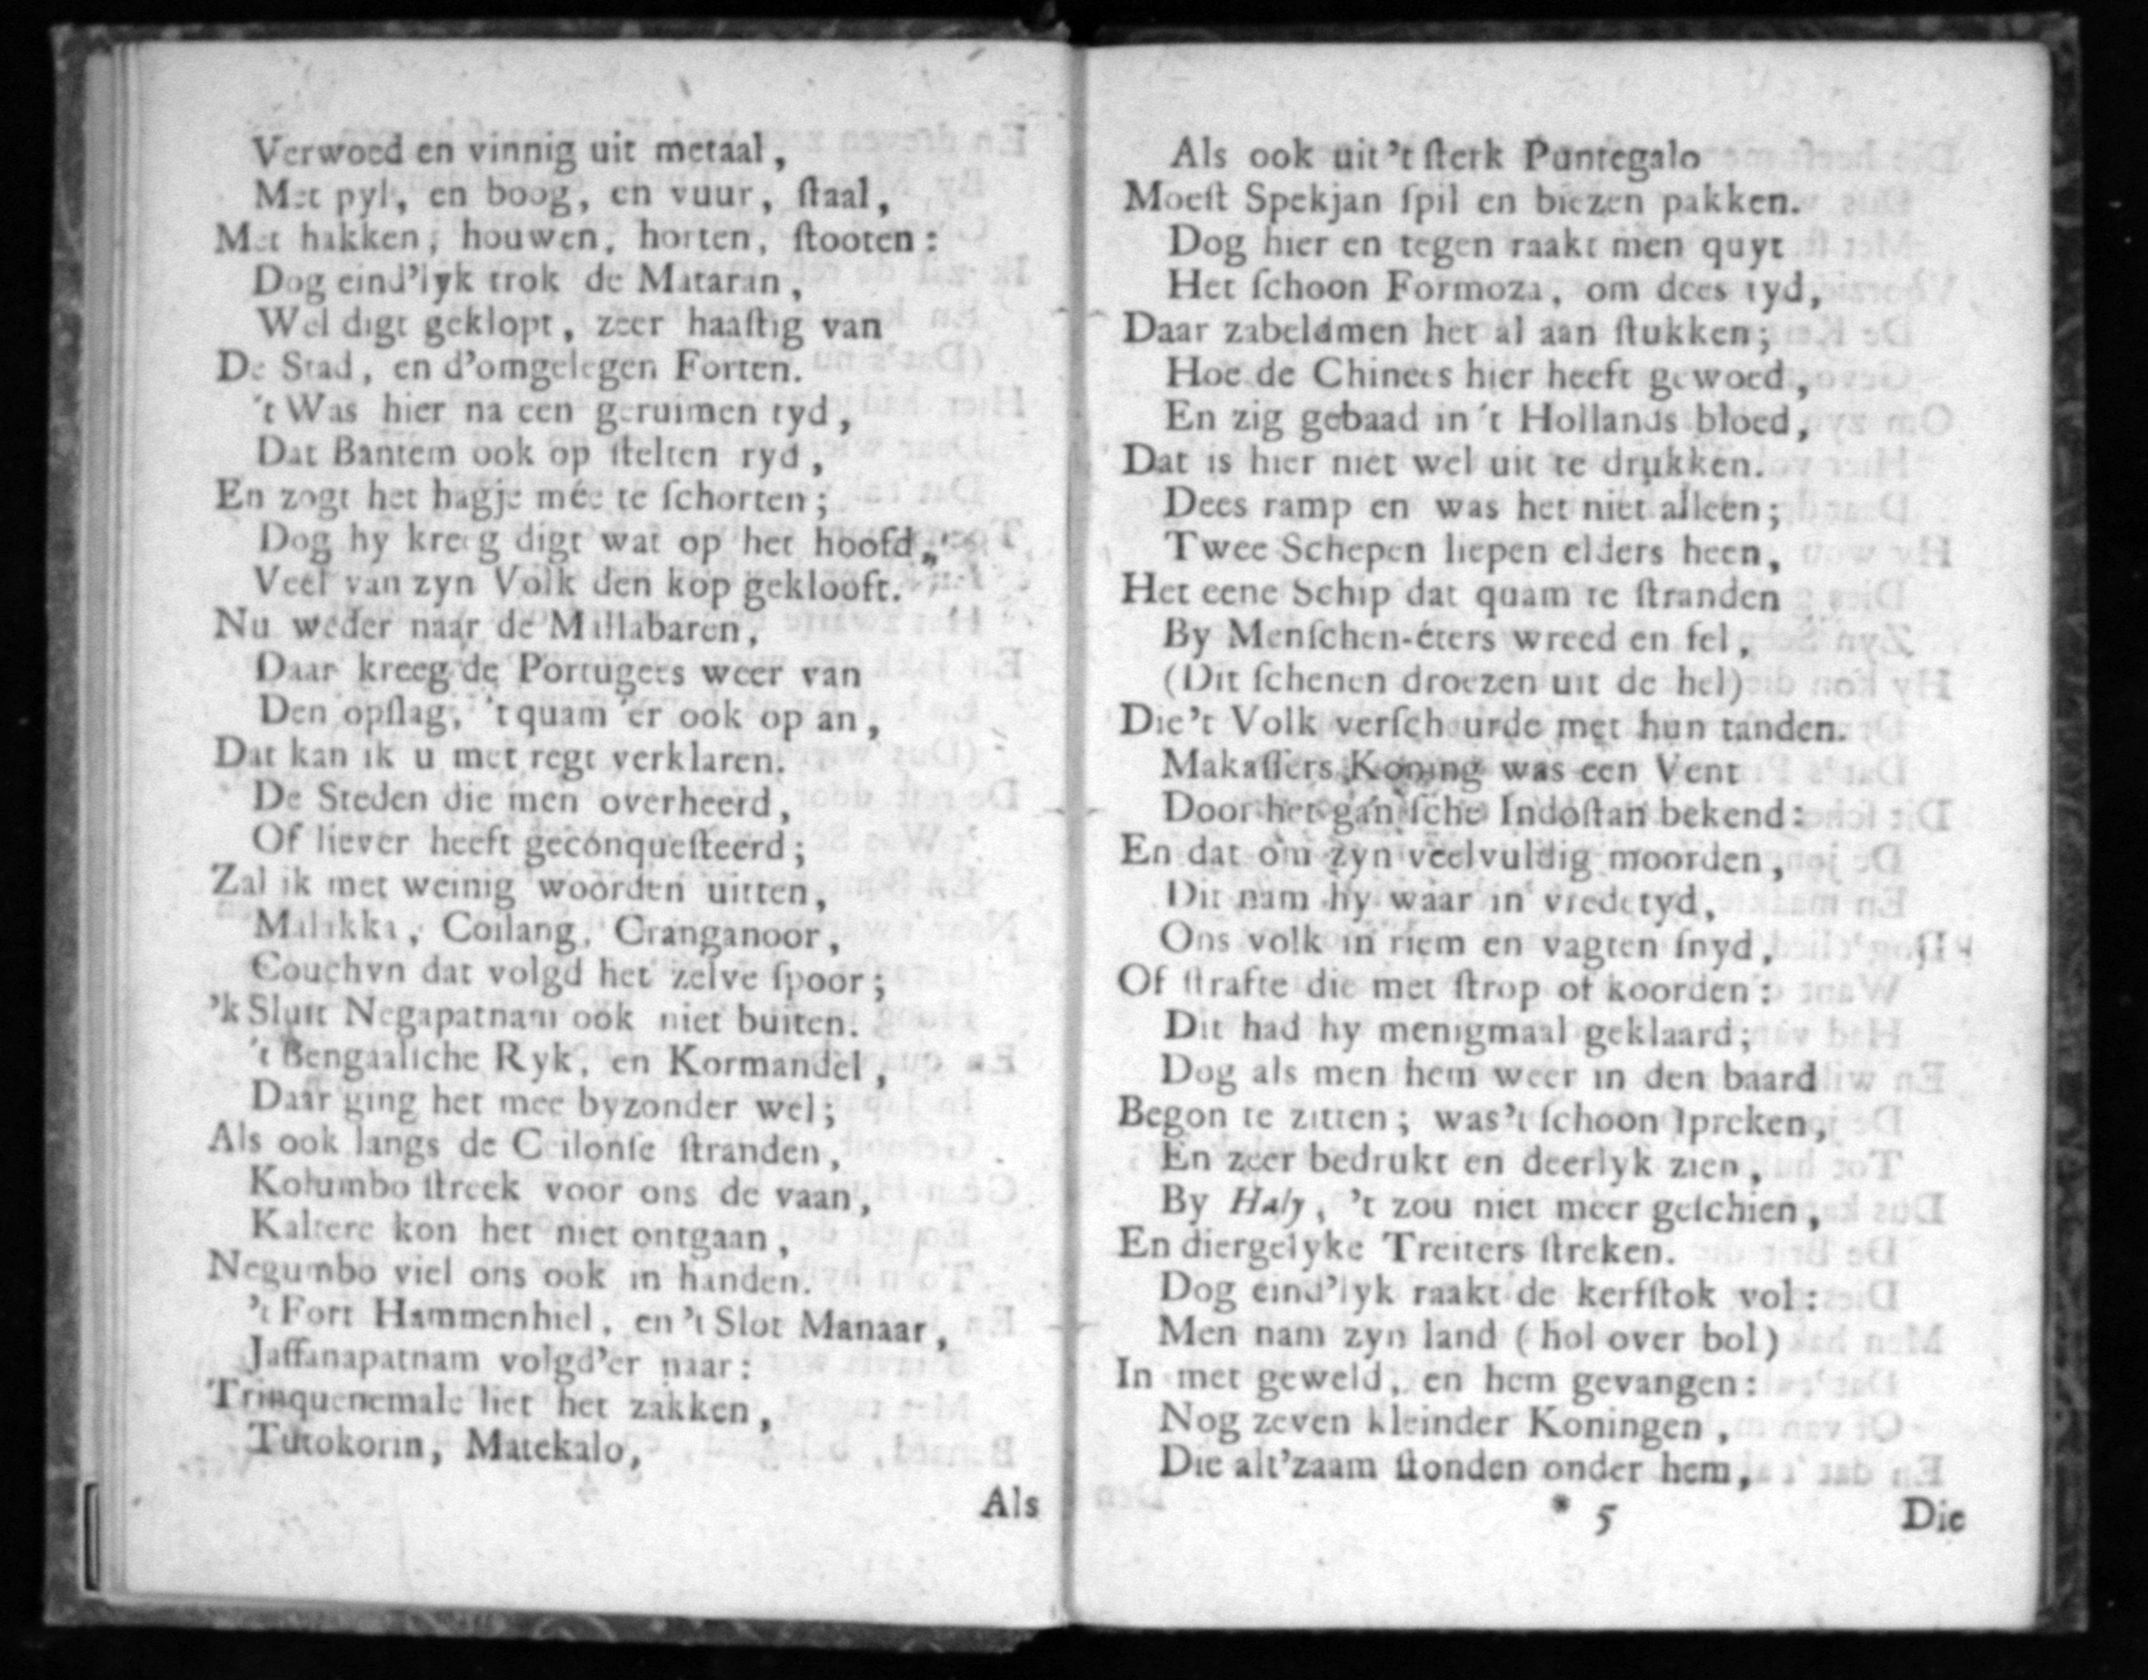 Verwoed en vinnig uit metaal,
Met pyl, en boog, en vuur, ſtaal,
Met hakken, houwen, horten, ſtooten:
Dog eind'lyk trok de Mataran,
Wel digt geklopt, zeer haaſtig van
De Stad, en d'omgelegen Forten.
't Was hier na een geruimen tyd,
Dat Bantem ook op ſtelten ryd,
En zogt het hagje mée te ſchorten;
Dog hy kreeg digt wat op het hoofd,
Veel van zyn Volk den kop geklooft.
Nu weder naar de Mallabaren,
Daar kreeg de Portugees weer van
Den opſlag, 't quam 'er ook op an,
Dat kan ik u met regt verklaren.
De Steden die men overheerd,
Of liever heeft geconqueſteerd;
Zal ik met weinig woorden uitten,
Malakka, Coilang, Cranganoor,
Couchyn dat volgd het zelve ſpoor;
'k Sluit Negapatnam ook niet buiten.
't Bengaalſche Ryk, en Kormandel,
Daar ging het mee byzonder wel;
Als ook langs de Ceilonſe ſtranden,
Kolumbo ſtreek voor ons de vaan,
Kaltere kon het niet ontgaan,
Negumbo viel ons ook in handen.
't Fort Hammenhiel, en 't Slot Manaar,
Jaffanapatnam volgd'er naar:
Trinquenemale liet het zakken,
Tutokorin, Matekalo,
Als
Als ook uit 't ſterk Puntegalo
Moeſt Spekjan ſpil en biezen pakken.
Dog hier en tegen raakt men quyt
Het ſchoon Formoza, om dees tyd,
Daar zabeldmen het al aan ſtukken;
Hoe de Chinees hier heeft gewoed,
En zig gebaad in 't Hollands bloed,
Dat is hier niet wel uit te drukken.
Dees ramp en was het niet alleen;
Twee Schepen liepen elders heen,
Het eene Schip dat quam te ſtranden
By Menſchen-éters wreed en fel,
(Dit ſchenen droezen uit de hel)
Die't Volk verſcheurde met hun tanden.
Makaſſers Koning was een Vent
Door het ganſche Indoſtan bekend:
En dat om zyn veelvuldig moorden,
Dit nam hy waar in vredetyd,
Ons volk in riem en vagten ſnyd,
Of ſtrafte die met ſtrop of koorden:
Dit had hy menigmaal geklaard;
Dog als men hem weer in den baard
Begon te zitten; was't ſchoon ſpreken,
En zeer bedrukt en deerlyk zien,
By Haly, 't zou niet meer geſchien,
En diergelyke Treiters ſtreken.
Dog eind'lyk raakt de kerfſtok vol:
Men nam zyn land (hol over bol)
In met geweld, en hem gevangen:
Nog zeven kleinder Koningen,
Die alt'zaam ſtonden onder hem,
* 5
Die